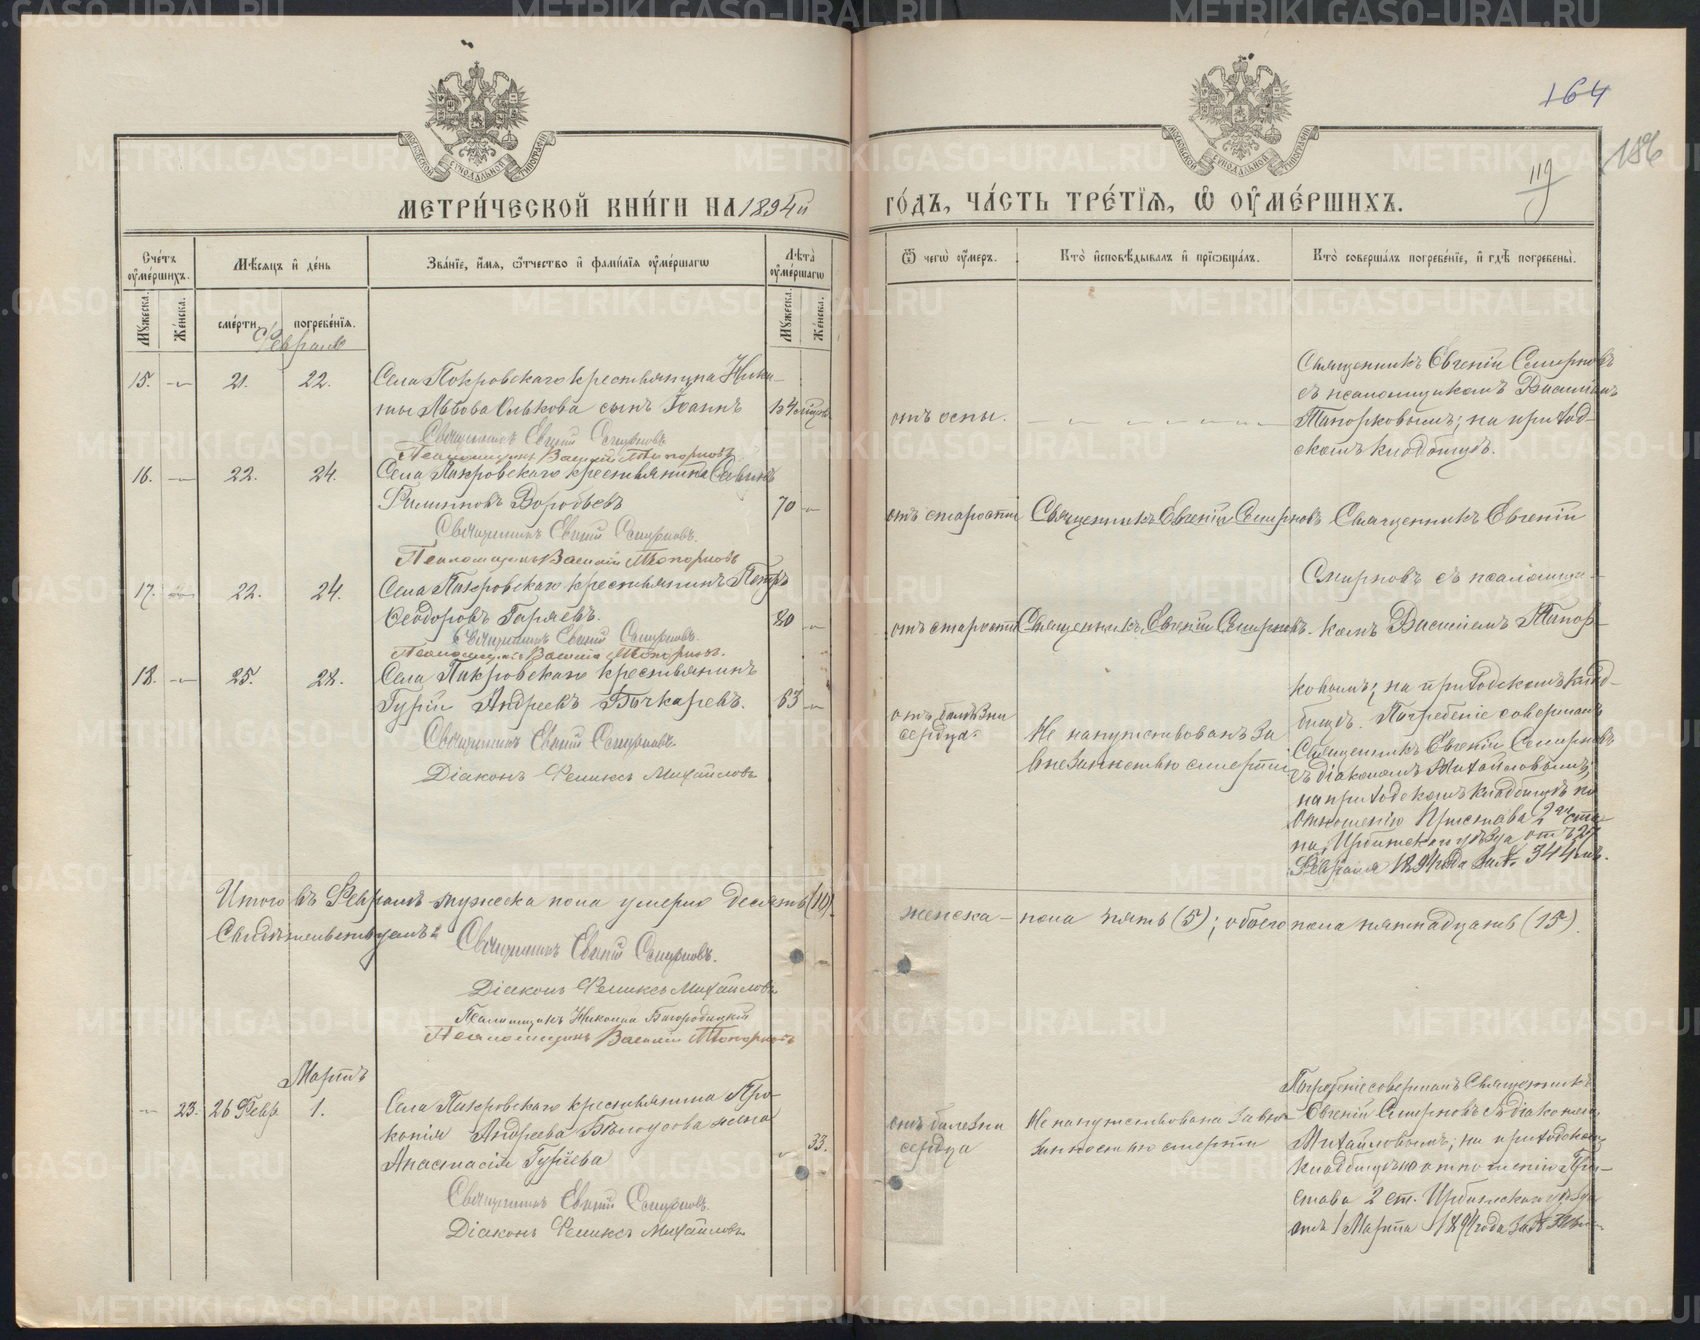 164
186
119
МЕТРИ́ЧЕСКОЙ КНИ́ГИ НА 1894й
ГО́ДЪ, ЧА́СТЬ ТРЕ́ТІЯ, Ѽ ОУ҆МЕ́РШИХЪ.
Сче́тъ оу҆ме́ршихъ.
Мѣ́сяцъ и҆ де́нь
Зва́нїе, и҆́мя, ѻ҆́тчество и҆ фами́лїя оу҆ме́ршагѡ
Лѣ́та оу҆ме́ршагѡ
Ѿ чегѡ̀ оу҆́меръ.
Кто̀ и҆сповѣ́дывалъ и҆ прїѡбща́лъ.
Кто̀ соверша́лъ погребе́нїе, и҆ гдѣ̀ погребены̀.
Мꙋжеска. Же́нска.
сме́рти. погребе́нїя.
Мꙋжеска. Же́нска.
Февраль
15. 21. 22. Села Покровскаго крестьянина Ники-
ты Львова сынъ Іоаннъ
Священникъ Евгеній Смирновъ
Псаломщикъ Василій Топорковъ
отъ оспы.
Священникъ Евгеній Смирновъ
съ псаломщикомъ Василіемъ
Топорковымъ; на приход-
скомъ кладбищѣ.
16. 22. 24. Села Покровскаго крестьянинъ
Филиповъ Воробьевъ 70
Священникъ Евгеній Смирновъ.
Псаломщикъ Василій Топорковъ
отъ старости Священникъ Евгеній Смирновъ Священникъ Евгеній
17. 22. 24. Села Покровскаго крестьянинъ Петръ
Ѳеодоровъ Горяевъ. 80
Священникъ Евгеній Смирновъ.
Псаломщикъ Василій Топорковъ.
Смирновъ съ псаломщи-
отъ старости Священникъ Евгеній Смирновъ. комъ Василіемъ Топор-
18. 25. 28. Села Покровскаго крестьянинъ
Гурій Андреевъ Бочкаревъ. 63
Священникъ Евгеній Смирновъ.
Діаконъ Феликсъ Михайловъ
отъ болѣзни
сердца.
Не напутствованъ за
внезапностью смерти
ковымъ; на приходскомъ клад-
бищѣ. Погребеніе совершалъ
Священникъ Евгеній Смирновъ
съ діакономъ Михайловымъ;
на приходскомъ кладбищѣ по
отношенію Пристава 2го ста-
на, Ирбитскаго уѣзда, отъ 27
Февраля 1894 года за № 344мъ.
Итого въ Февралѣ мужеска пола умерло десять (10).
женска пола пять (5); обоего пола пятнадцать (15).
Свидѣтельствуемъ:
Священникъ Евгеній Смирновъ.
Діаконъ Феликсъ Михайловъ
Псаломщикъ Николай Богородицкій
Псаломщикъ Василій Топорковъ
Мартъ
23. 26 Февр. 1. Села Покровскаго крестьянина Про-
копія Андреева Бѣлоусова жена
Анастасія Гуріева 33.
Священникъ Евгеній Смирновъ.
Діаконъ Феликсъ Михайловъ
отъ болѣзни
сердца
Не напутствована за вне-
запностью смерти
Погребеніе совершалъ Священникъ
Евгеній Смирновъ съ діакономъ
Михайловымъ; на приходскомъ
кладбищѣ по отношенію При-
става 2 ст. Ирбитскаго уѣзда
отъ 1 Марта 1894 года за №
METRIKI.GASO-URAL.RU